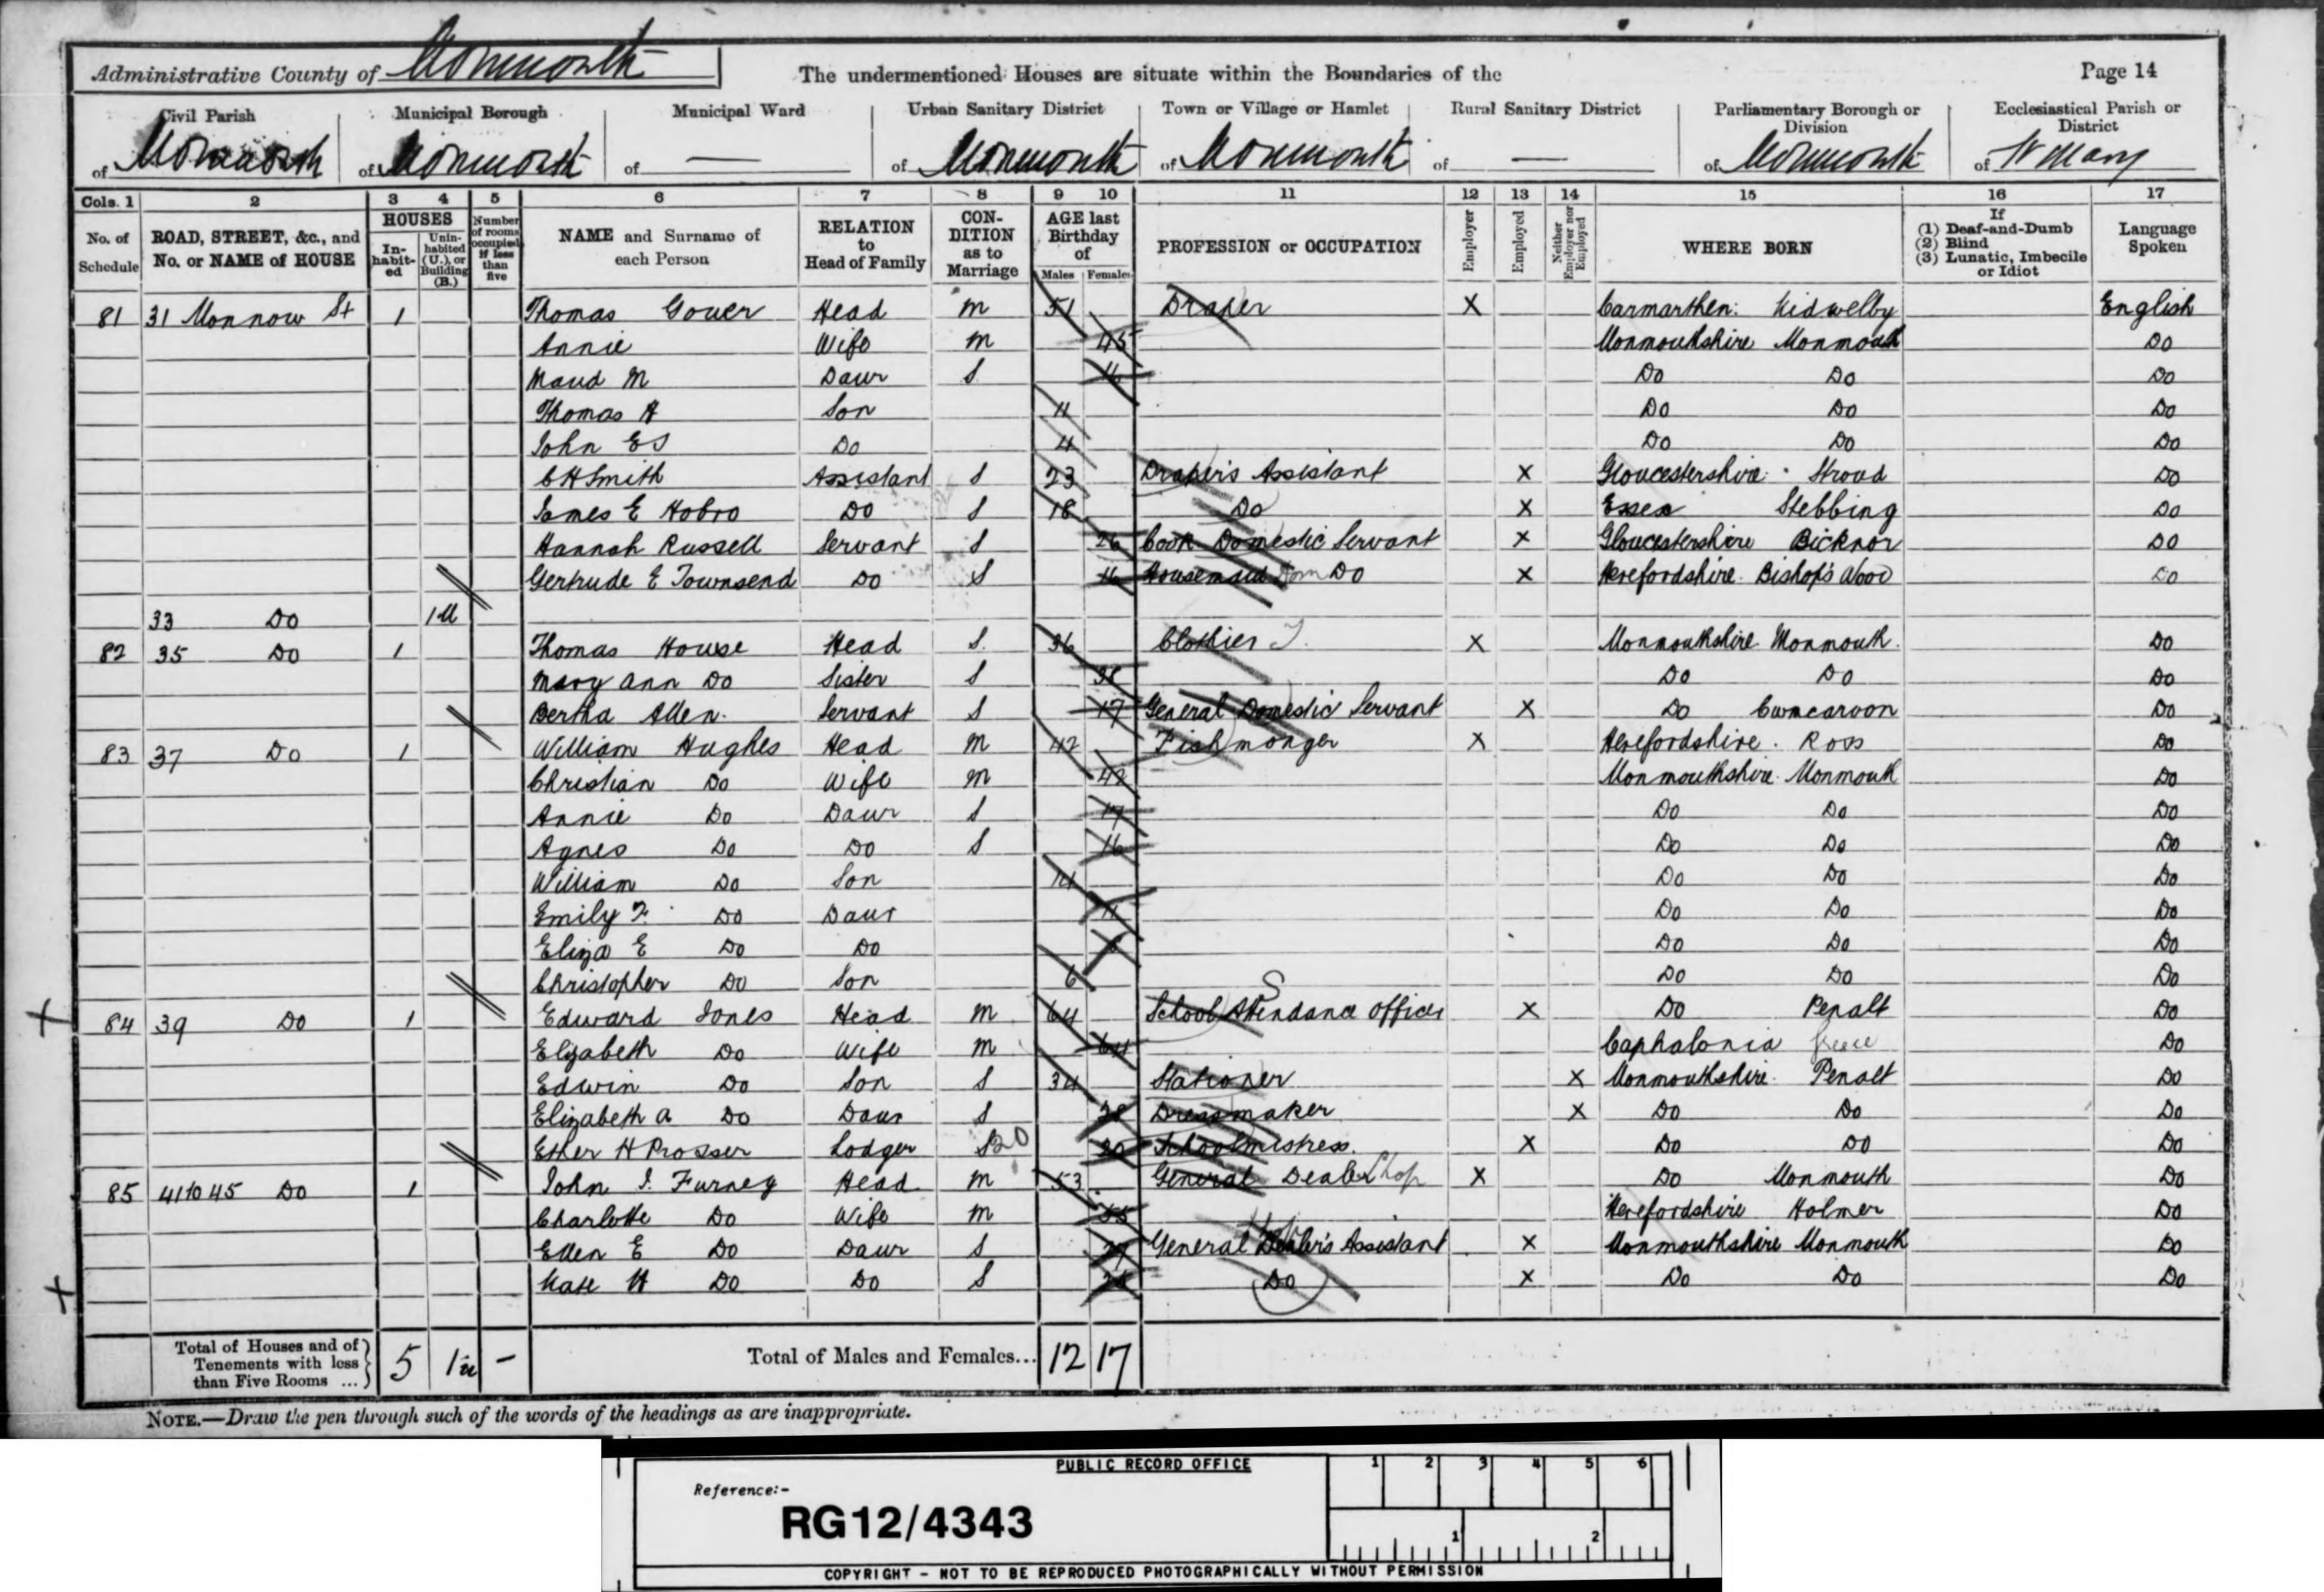 Administrative County of Monmouth The undermentioned Houses are situate within the Boundaries of the Page 14
Civil Parish Municipal Borough Municipal Ward Urban Sanitary District Town or Village or Hamlet Rural Sanitary District Parliamentary Borough or Division Ecclesiastical Parish or District
of Monmouth of Monmouth of — of Monmouth of Monmouth of — of Monmouth of St Mary
Cols. 1 2 3 4 5 6 7 8 9 10 11 12 13 14 15 16 17
No. of Schedule ROAD, STREET, &c., and No. or NAME of HOUSE HOUSES In-habit-ed Unin-habited (U.), or Building (B.) Number of rooms occupied if less than five NAME and Surname of each Person RELATION to Head of Family CON-DITION as to Marriage AGE last Birthday of Males Females PROFESSION or OCCUPATION Employer Employed Neither Employer nor Employed WHERE BORN If (1) Deaf-and-Dumb (2) Blind (3) Lunatic, Imbecile or Idiot Language Spoken
81 31 Monnow St 1 Thomas Gower Head M 51 Draper X Carmarthen: Kidwelly English
Annie Wife M 45 Monmouthshire Monmouth Do
Maud M Daur S 16 Do Do Do
Thomas A Son 11 Do Do Do
John ES Do 4 Do Do Do
C H Smith Assistant S 23 Draper's Assistant X Gloucestershire Stroud Do
James E Hobro Do S 18 Do X Essex Stebbing Do
Hannah Russell Servant S 26 Cook Domestic Servant X Gloucestershire Bicknor Do
Gertrude E Townsend Do S 16 Housemaid Dom Do X Herefordshire Bishop's Wood Do
33 Do 1U
82 35 Do 1 Thomas House Head S 36 Clothier X Monmouthshire Monmouth Do
Mary Ann Do Sister S 38 Do Do Do
Bertha Allen Servant S 17 General Domestic Servant X Do Cwmcarvon Do
83 37 Do 1 William Hughes Head M 42 Fishmonger X Herefordshire Ross Do
Christian Do Wife M 42 Monmouthshire Monmouth Do
Annie Do Daur S 17 Do Do Do
Agnes Do Do S 16 Do Do Do
William Do Son 14 Do Do Do
Emily F Do Daur 11 Do Do Do
Eliza E Do Do Do Do Do
Christopher Do Son 6 Do Do Do
84 39 Do 1 Edward Jones Head M 64 School Attendance Officer X Do Penalt Do
Elizabeth Do Wife M 64 Caphalonia Greece Do
Edwin Do Son S 34 Stationer X Monmouthshire Penalt Do
Elizabeth A Do Daur S 28 Dressmaker X Do Do Do
Esther H Prosser Lodger S 20 20 Schoolmistress X Do Do Do
85 41 to 45 Do 1 John J. Furney Head M 53 General Dealer Shop X Do Monmouth Do
Charlotte Do Wife M 55 Herefordshire Holmer Do
Ellen E Do Daur S General Dealer's Assistant X Monmouthshire Monmouth Do
Kate H Do Do S Do X Do Do Do
Total of Houses and of Tenements with less than Five Rooms ... 5 1u - Total of Males and Females... 12 17
NOTE.—Draw the pen through such of the words of the headings as are inappropriate.
PUBLIC RECORD OFFICE 1 2 3 4 5 6
Reference:-
RG12/4343
1 2
COPYRIGHT - NOT TO BE REPRODUCED PHOTOGRAPHICALLY WITHOUT PERMISSION